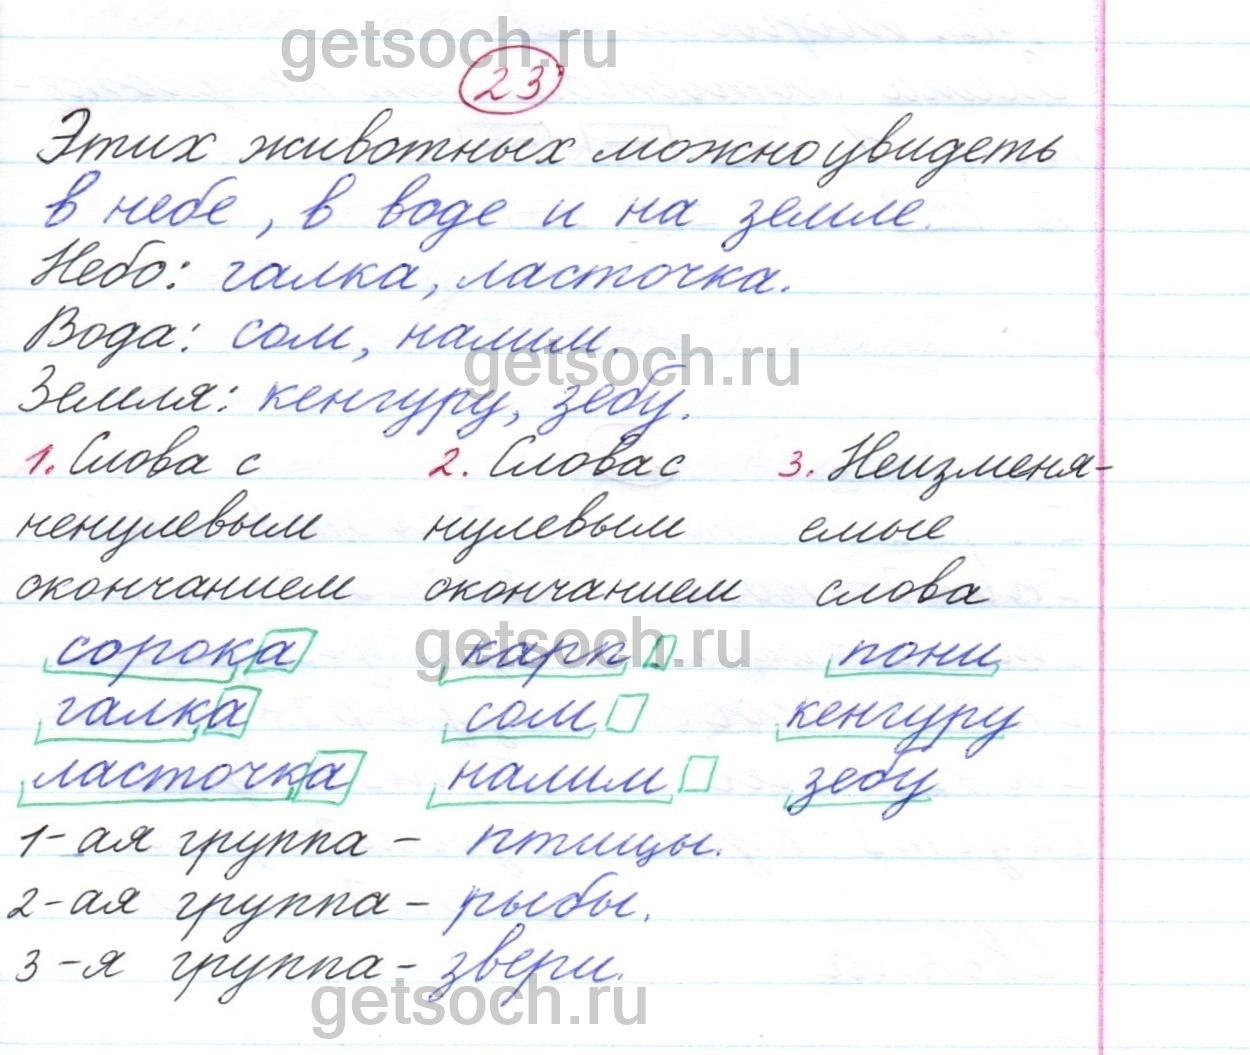 getsoch.ru
23
Этих животных можно увидеть
в небе, в воде и на земле.
Небо: галка, ласточка.
Вода: сом, налим.
getsoch.ru
Земля: кенгуру, зебу.
1. Слова с 2. Слова с 3. Неизменя-
ненулевым нулевым емые
окончанием окончанием слова
getsoch.ru
сорока карп пони
галка сом кенгуру
ласточка налим зебу
1-ая группа – птицы.
2-ая группа – рыбы.
3-я группа – звери.
getsoch.ru